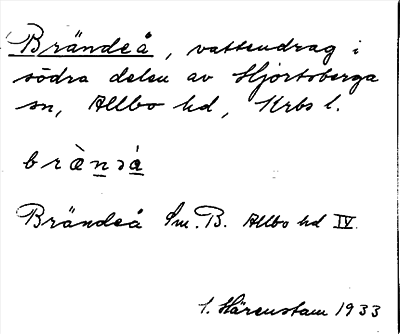 Brändeå, vattendrag i
södra delen av Hjortsberga
sn, Allbo hd, Krbs l.
bràǹ̲ə́a̲
Brändeå Sm. B. Allbo hd IV.
S. Härenstam 1933